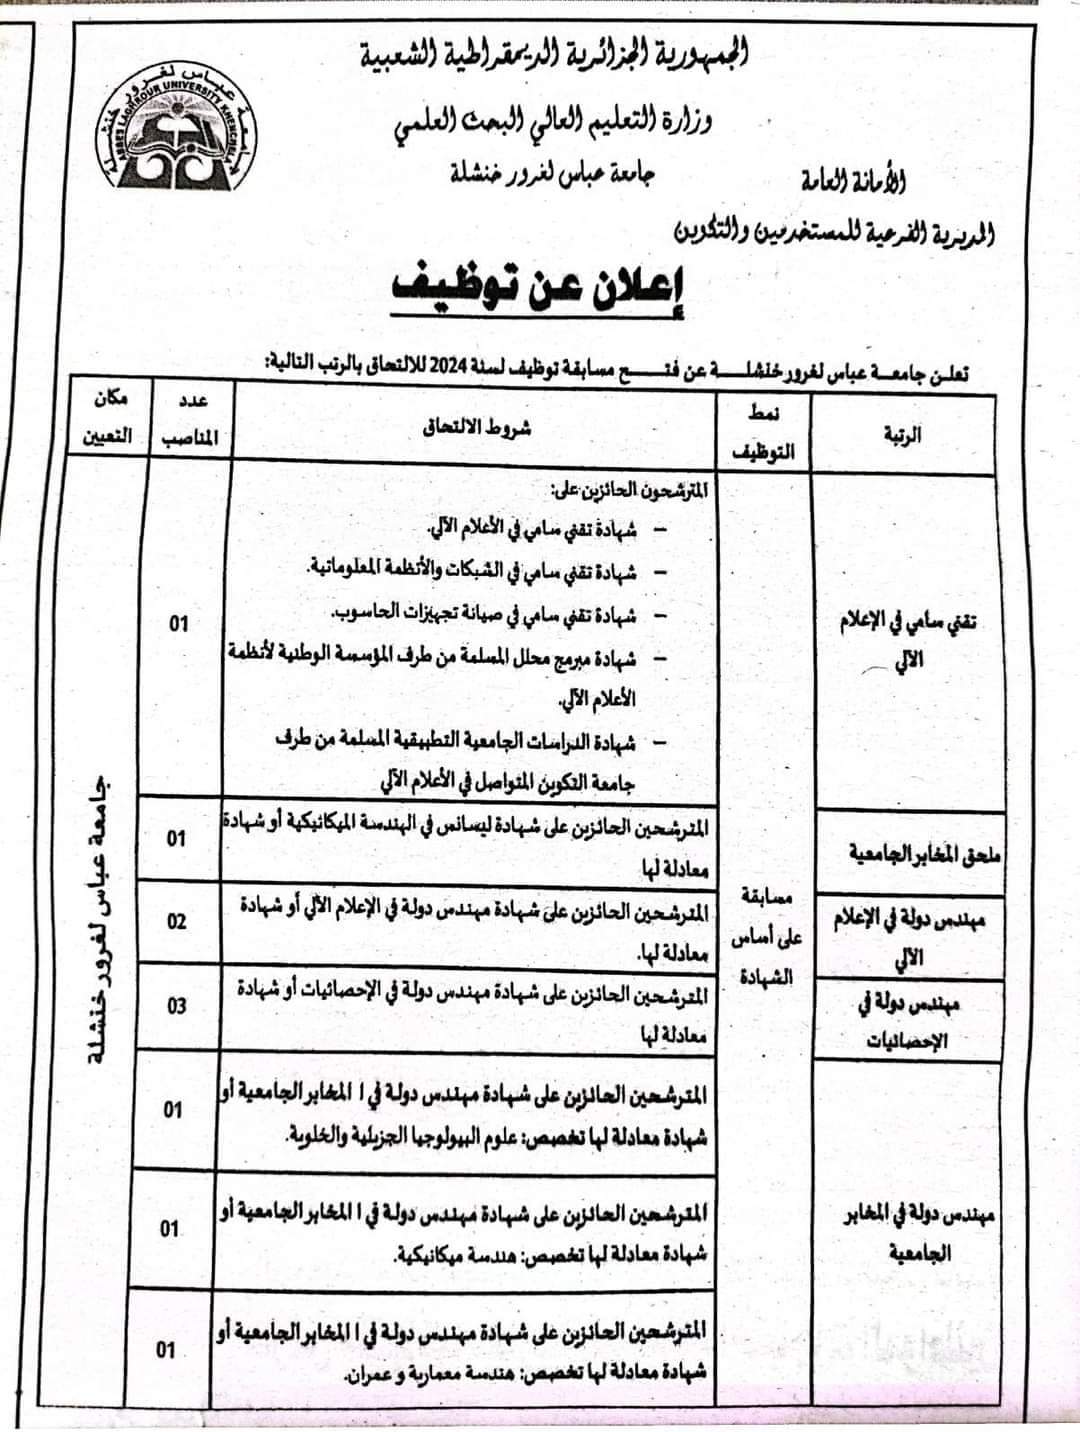 الجمهورية الجزائرية الديمقراطية الشعبية
وزارة التعليم العالي البحث العلمي
جامعة عباس لغرور خنشلة
جامعة عباس لغرور خنشلة
ABBES LAGHROUR UNIVERSITY KHENCHELA
الأمانة العامة
المديرية الفرعية للمستخدمين والتكوين
إعلان عن توظيف
تعلن جامعة عباس لغرور خنشلة عن فتح مسابقة توظيف لسنة 2024 للالتحاق بالرتب التالية:
الرتبة
نمط
التوظيف
شروط الالتحاق
عدد
المناصب
مكان
التعيين
تقني سامي في الإعلام
الآلي
مسابقة
على أساس
الشهادة
المترشحون الحائزين على:
– شهادة تقني سامي في الأعلام الآلي.
– شهادة تقني سامي في الشبكات والأنظمة المعلوماتية.
– شهادة تقني سامي في صيانة تجهيزات الحاسوب.
– شهادة مبرمج محلل المسلمة من طرف المؤسسة الوطنية لأنظمة
الأعلام الآلي.
– شهادة الدراسات الجامعية التطبيقية المسلمة من طرف
جامعة التكوين المتواصل في الأعلام الآلي
01
جامعة عباس لغرور خنشلة
ملحق المخابر الجامعية
المترشحين الحائزين على شهادة ليسانس في الهندسة الميكانيكية أو شهادة
معادلة لها
01
مهندس دولة في الإعلام
الآلي
المترشحين الحائزين على شهادة مهندس دولة في الإعلام الآلي أو شهادة
معادلة لها.
02
مهندس دولة في
الإحصائيات
المترشحين الحائزين على شهادة مهندس دولة في الإحصائيات أو شهادة
معادلة لها
03
مهندس دولة في المخابر
الجامعية
المترشحين الحائزين على شهادة مهندس دولة في ا المخابر الجامعية أو
شهادة معادلة لها تخصص: علوم البيولوجيا الجزيئية والخلوية.
01
المترشحين الحائزين على شهادة مهندس دولة في ا المخابر الجامعية أو
شهادة معادلة لها تخصص: هندسة ميكانيكية.
01
المترشحين الحائزين على شهادة مهندس دولة في ا المخابر الجامعية أو
شهادة معادلة لها تخصص: هندسة معمارية و عمران.
01